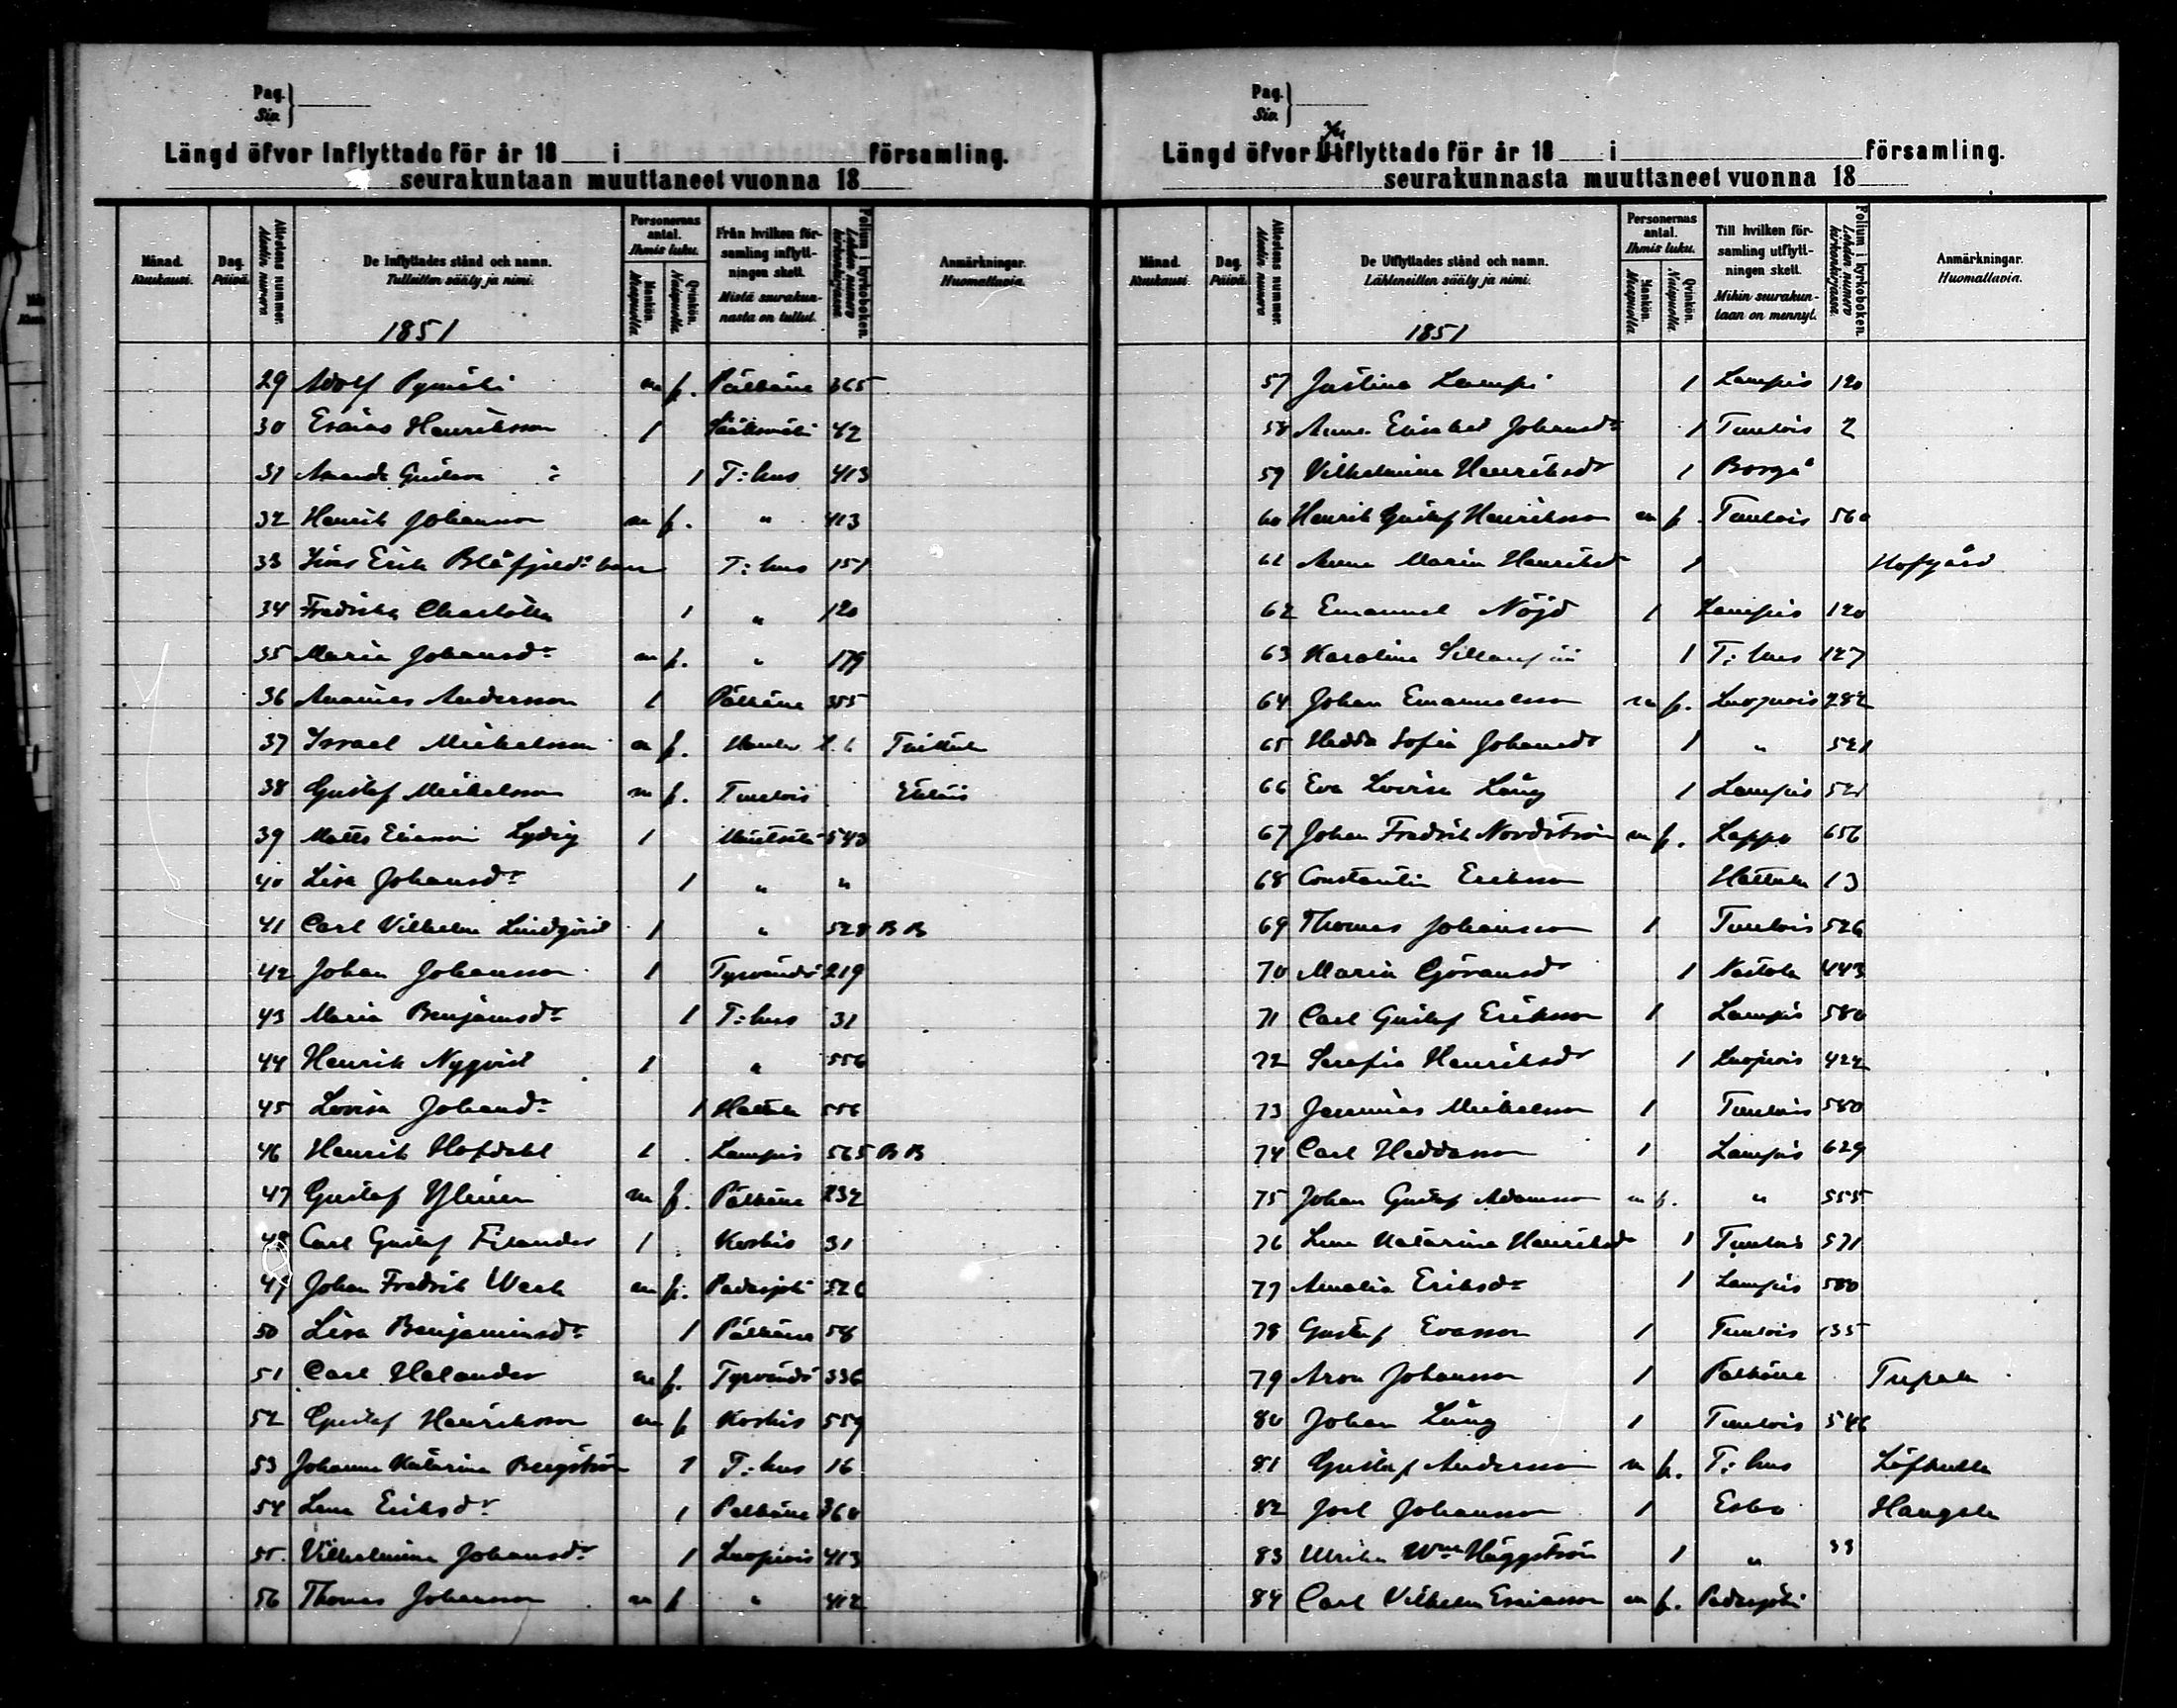 Pag.
Siv.
Längd öfver Inflyttade för år 18 i församling.
seurakuntaan muuttaneet vuonna 18
Månad. Kuukausi.
Dag. Päivä.
Attestens nummer. Atestin numero
De Inflyttades stånd och namn.
Tulleitten sääty ja nimi.
1851
Personernas antal. Ihmis luku.
Mankön. Miespuolia.
Qvinkön. Naispuolia.
Från hvilken församling inflyttningen skett.
Mistä seurakunnasta on tullut.
Folium i kyrkoboken. Lehden numero kirkonkirjassa.
Anmärkningar. Huomattavia.
29 Adolf m f. Pälkäne 365
30 Esaias Henriksson 1 Sääksmäki 42
31 Amanda Gustava 1 T:hus 413
32 Henrik Johansson m f. " 413
33 Erik T:hus 151
34 Fredrika Charlotta 1 " 120
35 Maria Johansdr m f. " 179
36 Ananias Andersson 1 Pälkäne 355
37 Israel Mickelsson m f.
38 Gustaf Mickelsson m f. Tuulois
39 Matts Eliasson 1 543
40 Lisa Johansdr 1 " "
41 Carl Vilhelm Lindqvist 1 " 528 BB
42 Johan Johansson 1 Tyrvändö 219
43 Maria Benjamsdr 1 T:hus 31
44 Henrik Nyqvist 1 " 556
45 Lovisa Johansdr 1 Hattula 556
46 Henrik Hofdahl 1 Lampis 565 BB
47 Gustaf Ylenen m f. Pälkäne 232
48 Carl Gustaf Filander 1 Koskis 31
49 Johan Fredrik m f. Padasjoki 526
50 Lisa Benjaminsdr 1 Pälkäne 58
51 Carl Helander m f. Tyrvändö 336
52 Gustaf Henriksson m f Koskis 559
53 Johanna Katarina Bergström 1 T:hus 16
54 Lena Eriksdr 1 Pälkäne 360
55. Vilhelmina Johansdr 1 Luopiois 413
56 Thomas Johansson m f " 412
Pag.
Siv.
Längd öfver Utflyttade för år 18 i församling.
seurakunnasta muuttaneet vuonna 18
Månad. Kuukausi.
Dag. Päivä.
Attestens nummer. Atestin numero
De Utflyttades stånd och namn.
Lähteneitten sääty ja nimi.
1851
Personernas antal. Ihmis luku.
Mankön. Miespuolia.
Qvinkön. Naispuolia.
Till hvilken församling utflyttningen skett.
Mihin seurakuntaan on mennyt.
Folium i kyrkoboken. Lehden numero kirkonkirjassa.
Anmärkningar. Huomattavia.
57 Justina Lampi 1 Lampis 120
58 Anna Elisabet Johansdr 1 Tuulois 2
59 Vilhelmina Henriksdr 1 Borgå
60 Henrik Gustaf Henriksson m f. Tuulois 560
62 Anna Maria Henriksd 1 Hofgård
62 Emanuel Nöjd 1 Lampis 120
63 Karolina Sillanpää 1 T:hus 127
64 Johan Emanuelsson m f. Luopiois 282
65 Hedda Sofia Johansdr 1 " 521
66 Eva Lovisa Lång 1 Lampis 521
67 Johan Fredrik Nordström m f. Lappo 656
68 Constantin Eriksson Hattula 13
69 Thomas Johansson 1 Tuulois 526
70 Maria Göransdr 1 Nastola 443
71 Carl Gustaf Eriksson 1 Lampis 580
72 Serafia Henriksdr 1 Luopiois 422
73 Jeremias Mickelsson 1 Tuulois 580
74 Carl Heddasson 1 Lampis 629
75 Johan Gustaf Adamsson m f. " 555
76 Lena Katarina Henriksdr 1 Tuulois 571
77 Amalia Eriksdr 1 Lampis 580
78 Gustaf Evasson 1 Tuulois 135
79 Aron Johansson 1 Pälkäne
80 Johan Lång 1 Tuulois 546
81 Gustaf Andersson m f. T:hus Löfkulla
82 Joel Johansson 1 Esbo
83 Ulrika Häggström 1 " 33
84 Carl Vilhelm Esaiasson m f. Padasjoki